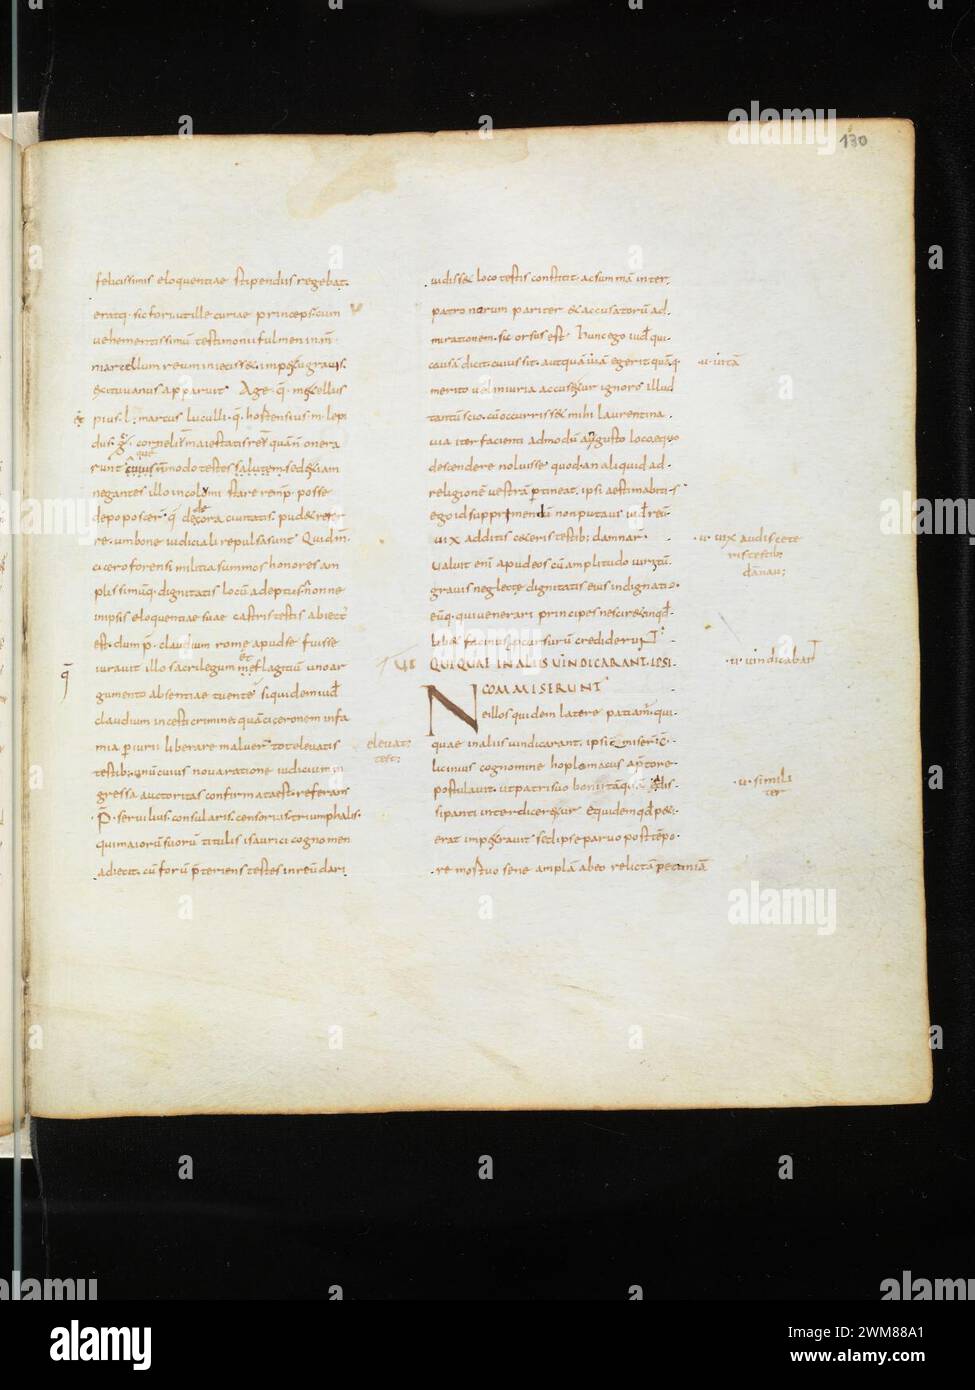 130
felicissimis eloquentiae stipendiis regebat.
eratq· sic fori· ut ille curiae princeps· cum
vehementissimū testimonii fulmen in·m̄·
marcellum reum iniecisset· impetu gravis·
extitu vanus apparuit Age· q̄· metellus
pius· l· marcus luculli· q̄· hortensius· m· lepi
dus· cornelii maiestatis rei quān̄ onera
runt testes salutem· sed etiam
negantes illo incolomi stare remp̄· posse
depoposcer̄· decora civitatis· pudet refer
re· umbone iudiciali repulsa sunt Quid m̄·
cicero forensi militia summos honores am
plissimūq· dignitatis locū adeptus· nonne
in ipsis eloquentiae suae castris testis abiect'
est· dum p̄· claudium rome apud se fuisse
iuravit illo sacrilegum flagitiū uno ar
gumento absentiae tuente siquidem iud'
claudium incesti crimine quā ciceronem infa
mia periurii liberare maluer̄ tot elevatis
testib; unū cuius nova ratione iudicium in
gressa auctoritas confirmata est· referam
P̄· servilius· consularis· censorius· triumphalis·
qui maiorū suorū titulis isaurici cognomen
adiecit· cū forū p̄teriens testes in reū dari
elevat:
test:
vidisset loco testis constitit· ac summā inter
patronorum pariter et accusatorū ad
mirationem· sic orsus est· Hunc ego iud' qui
causā dicit· cuius sit· aut quā viā egerit quāq·
merito vel iniuria accusetur ignoro illud
tantū scio· cū occurrisset mihi laurentina
via iter facienti admodū angusto loco equo
descendere noluisse quod an aliquid ad
religionē vestrā p̄tineat· ipsi aestimabitis
ego id supprimendū non putavi iud' reū·
vix additis ceteris testib; damnar̄·
Valuit enī apud eos cū amplitudo viri· tū
gravis neglecte dignitatis eius indignatio·
eūq· qui venerari principes nesciret· in qd'
libet facinus procursurū crediderunt
QUI QUAE IN ALIIS VINDICARANT· IPSI
COMMISERUNT
Ne illos quidem latere patiam̄· qui
quae in aliis vindicarant· ipsi cōmiserūt·
licinius cognomine hoplomacus a p̄tore
postulavit· ut patri suo bonis tāquā ea dis
sipanti interdiceretur Et quidem qd' pet·
erat impetravit· sed ipse parvo post tēpo
re mortuo sene amplā ab eo relictā pecuniā
·v· vitā
·v· vix audis cete
ris testib;
dānav;
·v· vindicabant
·v· simili
ter
alamy
Image ID: 2WM88A1
www.alamy.com